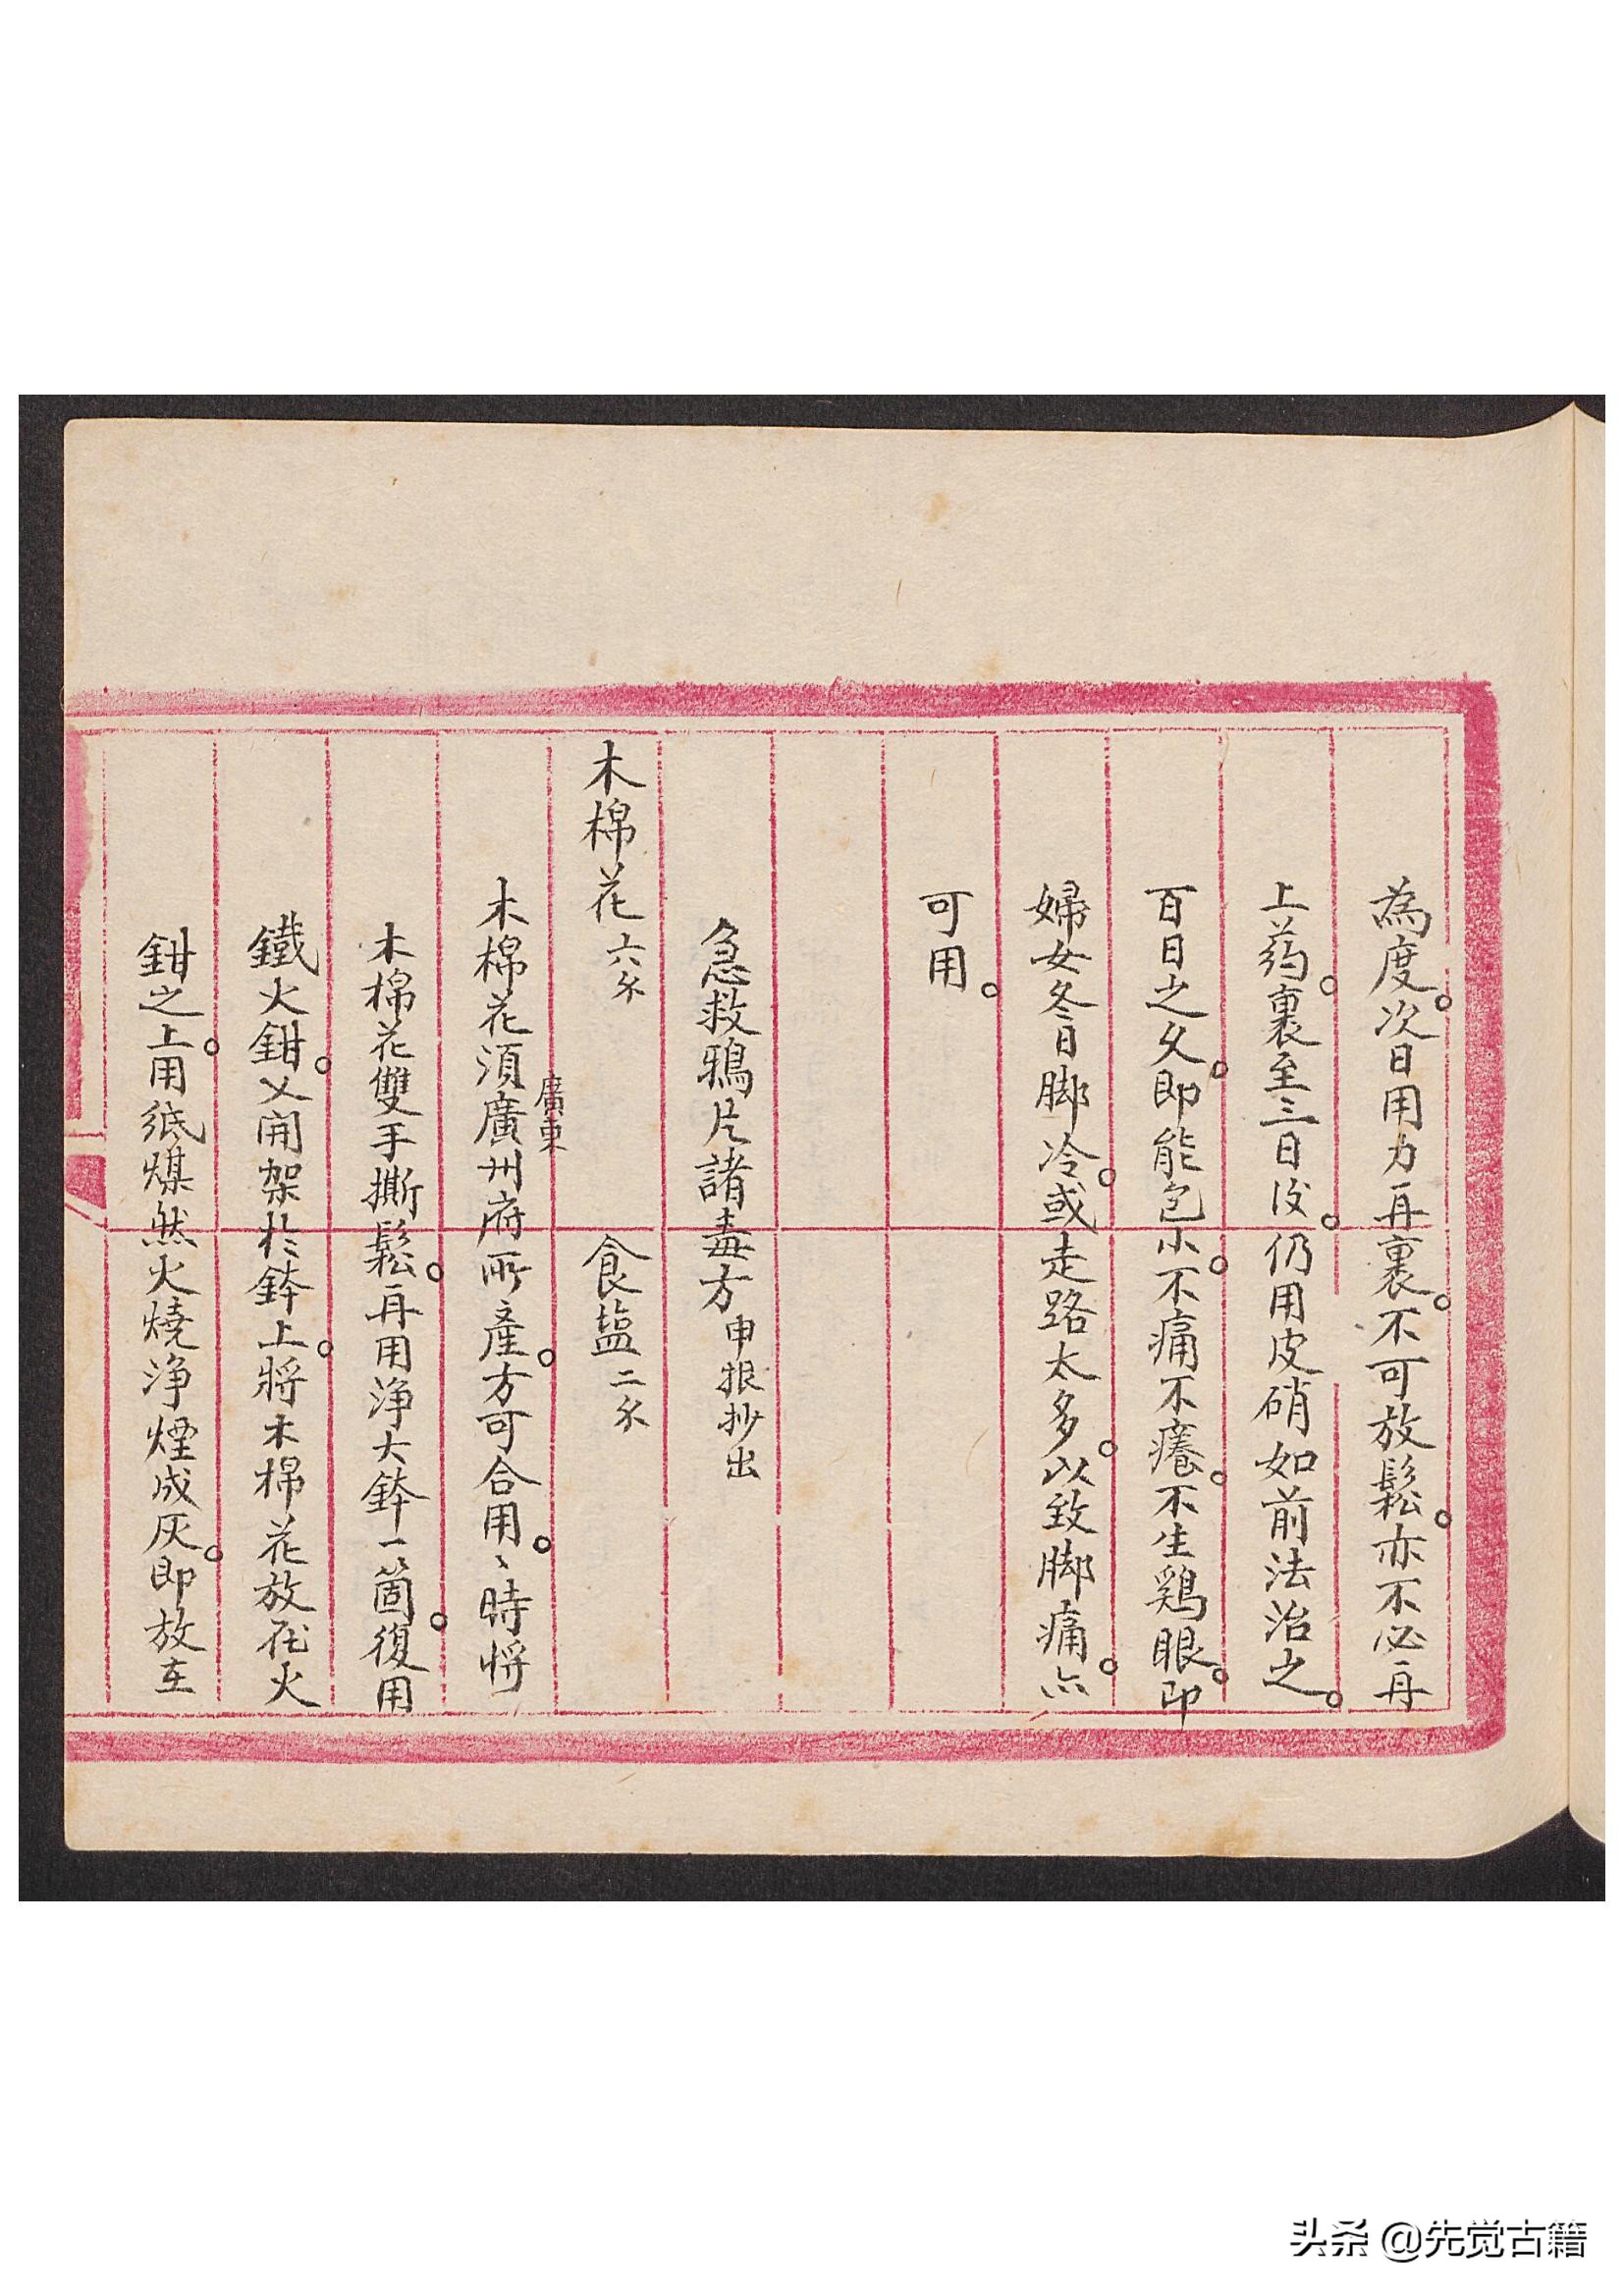 為度。次日用力再裹。不可放鬆。亦不必再
上药。裹至三日後。仍用皮硝如前法治之。
百日之久。即能包小。不痛不癢。不生鷄眼。即
婦女冬日脚冷。或走路太多。以致脚痛。亦
可用。
急救鴉片諸毒方 申报抄出
木棉花 六分 食塩 二分
木棉花須廣東廣州府所產。方可合用。〻時将
木棉花雙手撕鬆。再用淨大鉢一箇。復用
鐵火鉗。乂開架於鉢上。將木棉花放在火
鉗之上。用紙煤然火燒淨煙成灰。即放在
头条 @先觉古籍